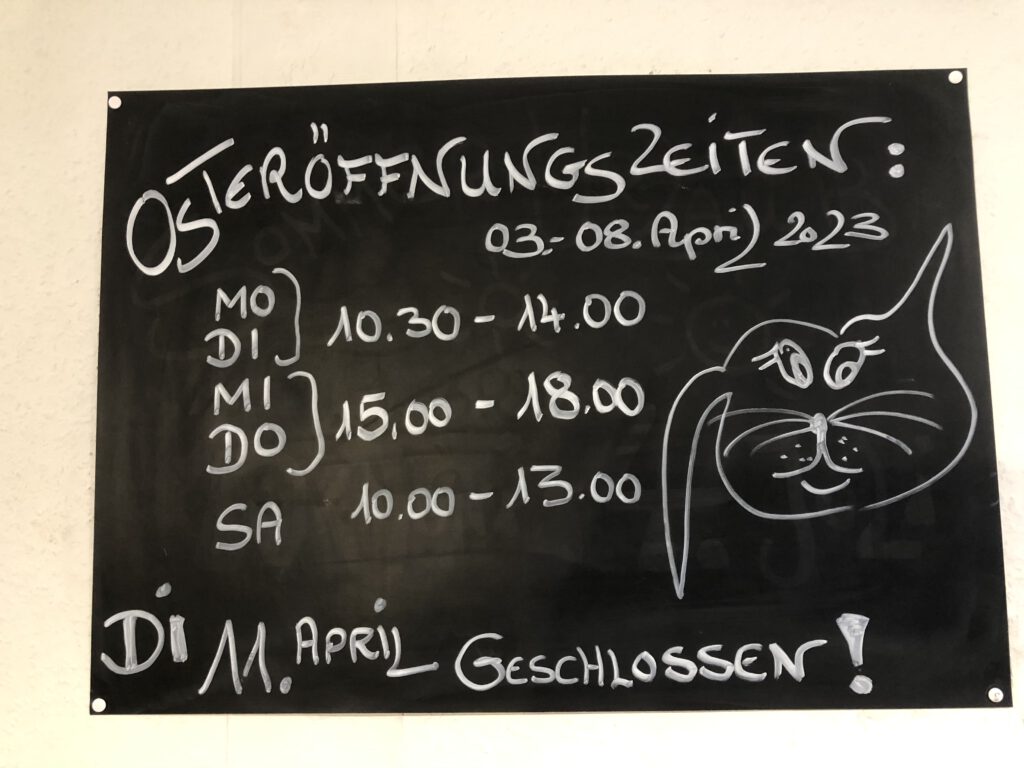 OSTERÖFFNUNGSZEITEN:
03.-08. April 2023
MO
DI
10.30 - 14.00
MI
DO
15.00 - 18.00
SA 10.00 - 13.00
Di 11. APRiL GESCHLOSSEN!